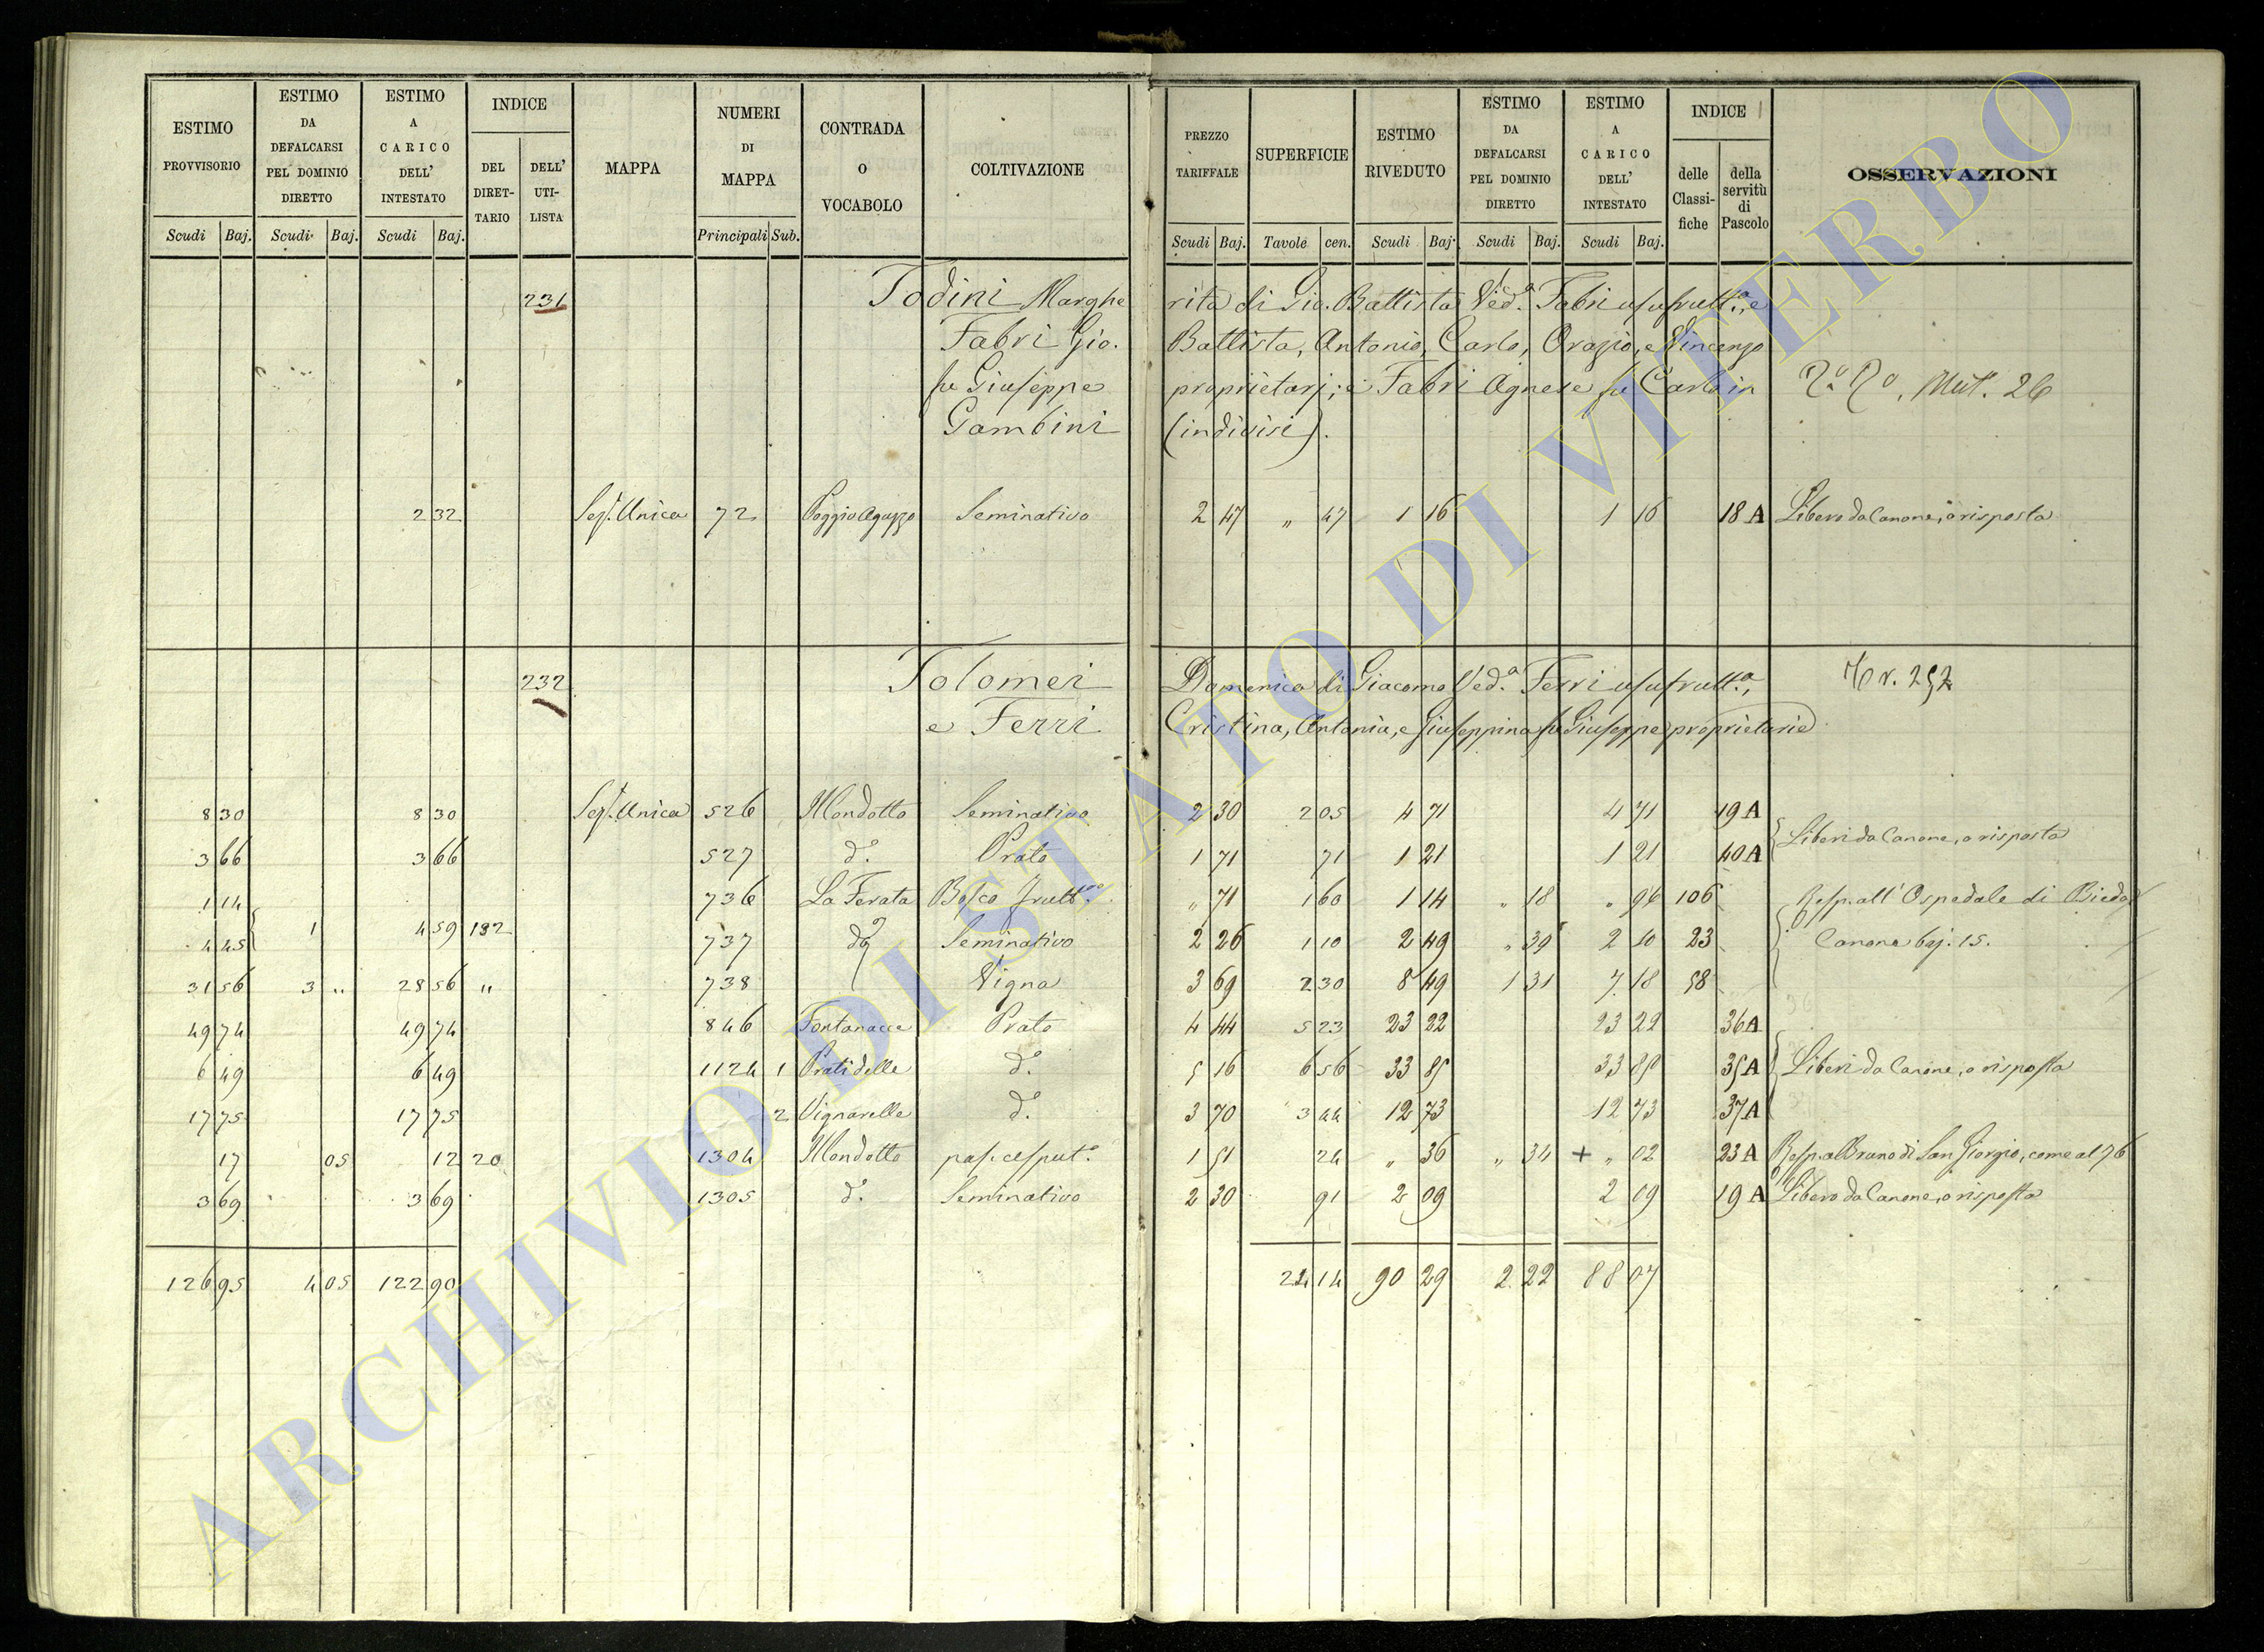 ESTIMO PROVVISORIO
Scudi Baj.
ESTIMO DA DEFALCARSI PEL DOMINIO DIRETTO
Scudi Baj.
ESTIMO A CARICO DELL' INTESTATO
Scudi Baj.
INDICE
DEL DIRETTARIO
DELL' UTILISTA
MAPPA
NUMERI DI MAPPA
Principali Sub.
CONTRADA O VOCABOLO
COLTIVAZIONE
PREZZO TARIFFALE
Scudi Baj.
SUPERFICIE
Tavole cen.
ESTIMO RIVEDUTO
Scudi Baj.
ESTIMO DA DEFALCARSI PEL DOMINIO DIRETTO
Scudi Baj.
ESTIMO A CARICO DELL' INTESTATO
Scudi Baj.
INDICE
delle Classifiche
della servitù di Pascolo
OSSERVAZIONI
231 Todini Marghe rita di Gio. Battista Ved.a Fabri usufrutt.a, e
Fabri Gio. Battista, Antonio, Carlo, Orazio, e Vincenzo
fu Giuseppe proprietarj; e Fabri Agnese fu Carlo in
Mut. 26
Gambini (indivisi).
2 32 Sez.e Unica 72 Poggio Aguzzo Seminativo 2 47 " 47 1 16 1 16 18 A Libero da Canone, o risposta
232 Tolomei Domenica di Giacomo Ved.a Ferri usufrutt.a,
252
e Ferri Cristina, Antonia, e Giuseppina fu Giuseppe proprietarie
8 30 8 30 Sez.e Unica 526 Mondotto Seminativo 2 30 2 05 4 71 4 71 19 A
3 66 3 66 527 d.o Prato 1 71 71 1 21 1 21 40 A Liberi da Canone, o risposta
1 14 736 La Ferata Bosco frutt.o " 71 1 60 1 14 " 18 " 96 106 Resp. all' Ospedale di Bieda
4 45 1 4 59 192 737 d.o Seminativo 2 26 1 10 2 49 " 39 2 10 23 Canone baj. 15.
31 56 3 " 28 56 " 738 Vigna 3 69 2 30 8 49 1 31 7 18 58
49 74 49 74 846 Fontanacce Prato 4 44 5 23 23 22 23 22 36 A
6 49 6 49 1124 1 Prati delle d.o 5 16 6 56 33 85 33 85 35 A Liberi da Canone, o risposta
17 75 17 75 2 Vignarelle d.o 3 70 3 44 12 73 12 73 37 A
17 05 12 20 1304 Mondotto pas. cesput.o 1 51 24 " 36 " 34 + " 02 23 A Resp. a Bruno di San Giorgio, come al 76
3 69 3 69 1305 d.o Seminativo 2 30 91 2 09 2 09 19 A Libero da Canone, o risposta
126 95 4 05 122 90 24 14 90 29 2 22 88 07
ARCHIVIO DI STATO DI VITERBO